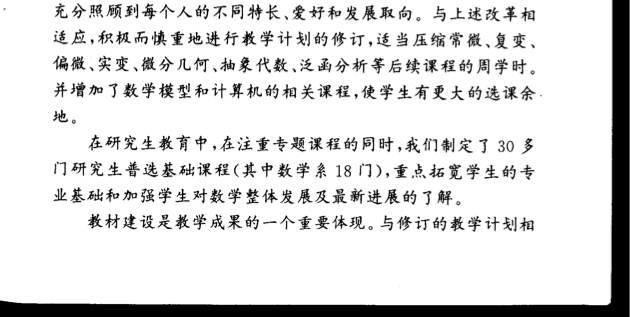 充分照顾到每个人的不同特长、爱好和发展取向。与上述改革相
适应,积极而慎重地进行教学计划的修订,适当压缩常微、复变、
偏微、实变、微分几何、抽象代数、泛函分析等后续课程的周学时。
并增加了数学模型和计算机的相关课程,使学生有更大的选课余
地。
在研究生教育中,在注重专题课程的同时,我们制定了 30 多
门研究生普选基础课程(其中数学系 18 门),重点拓宽学生的专
业基础和加强学生对数学整体发展及最新进展的了解。
教材建设是教学成果的一个重要体现。与修订的教学计划相